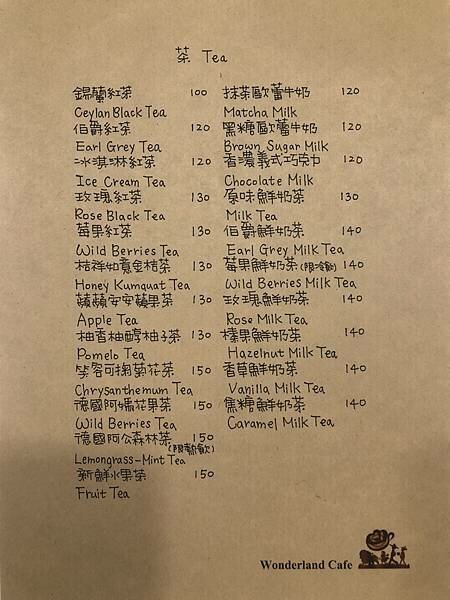 茶 Tea
錫蘭紅茶 100
Ceylan Black Tea
伯爵紅茶 120
Earl Grey Tea
冰淇淋紅茶 120
Ice Cream Tea
玫瑰紅茶 130
Rose Black Tea
莓果紅茶 130
Wild Berries Tea
桔祥如意金桔茶 130
Honey Kumquat Tea
蘋蘋安安蘋果茶 130
Apple Tea
柚香柚醇柚子茶 130
Pomelo Tea
笑容可掬菊花茶 150
Chrysanthemum Tea
德國阿嬤花果茶 150
Wild Berries Tea
德國阿公森林茶 150
(限熱飲)
Lemongrass-Mint Tea
新鮮水果茶 150
Fruit Tea
抹茶歐蕾牛奶 120
Matcha Milk
黑糖歐蕾牛奶 120
Brown Sugar Milk
香濃義式巧克力 120
Chocolate Milk
原味鮮奶茶 130
Milk Tea
伯爵鮮奶茶 140
Earl Grey Milk Tea
莓果鮮奶茶(限冷飲) 140
Wild Berries Milk Tea
玫瑰鮮奶茶 140
Rose Milk Tea
榛果鮮奶茶 140
Hazelnut Milk Tea
香草鮮奶茶 140
Vanilla Milk Tea
焦糖鮮奶茶 140
Caramel Milk Tea
Wonderland Cafe